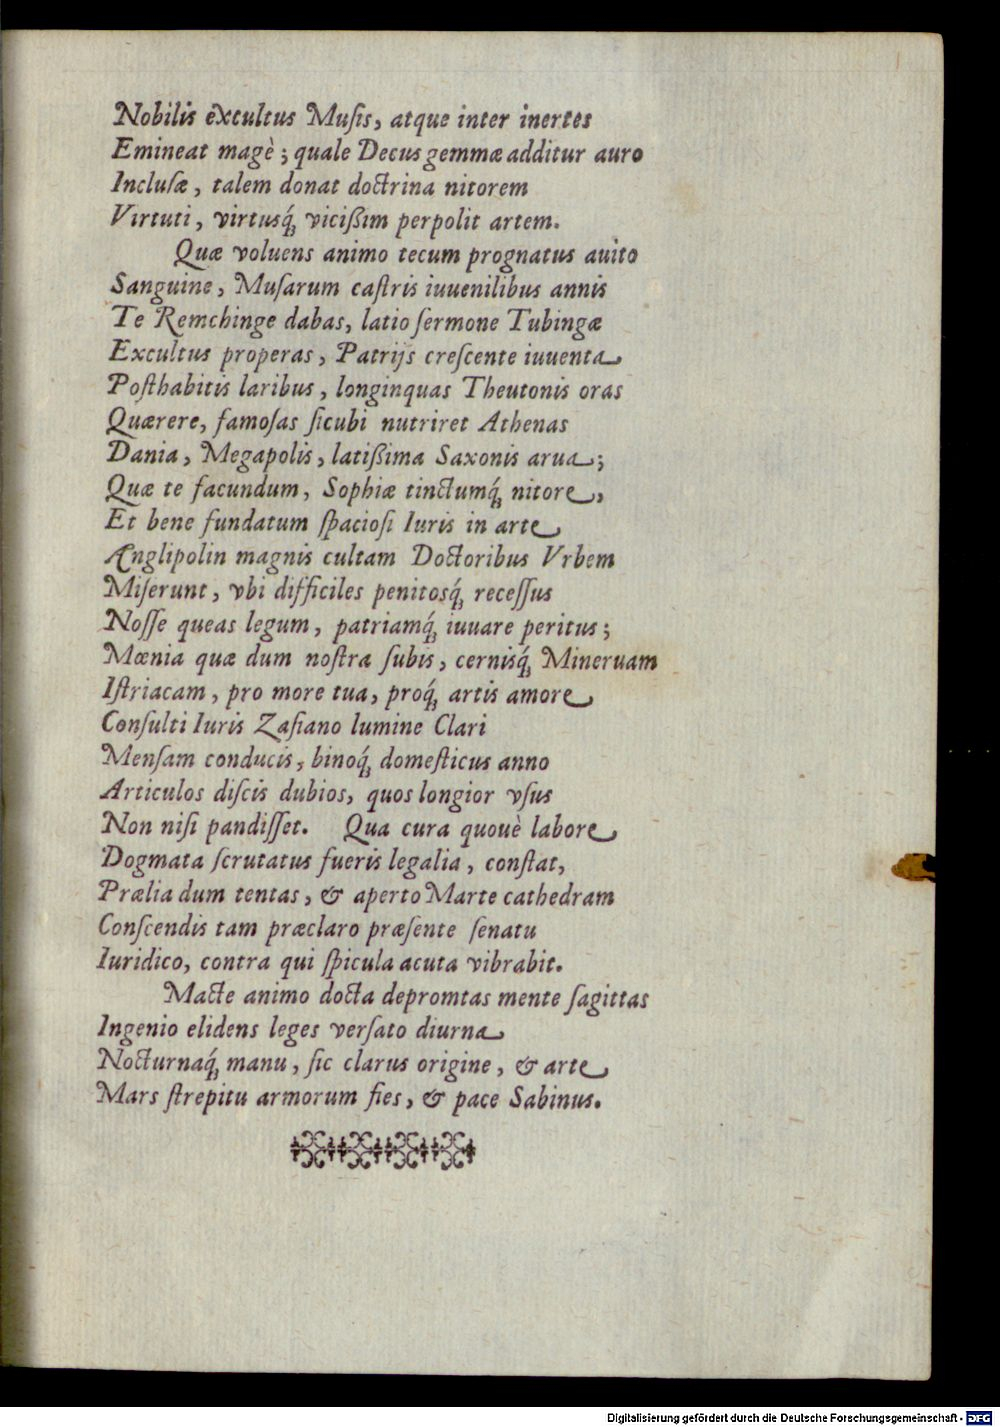 Nobilis excultus Musis, atque inter inertes
Emineat magè; quale Decus gemmæ additur auro
Inclusæ, talem donat doctrina nitorem
Virtuti, virtusq́; vicißim perpolit artem.
Quæ voluens animo tecum prognatus auito
Sanguine, Musarum castris iuuenilibus annis
Te Remchinge dabas, latio sermone Tubingæ
Excultus properas, Patrijs crescente iuuenta
Posthabitis laribus, longinquas Theutonis oras
Quærere, famosas sicubi nutriret Athenas
Dania, Megapolis, latißima Saxonis arua;
Quæ te facundum, Sophiæ tinctumq́; nitore,
Et bene fundatum spaciosi Iuris in arte
Ænglipolin magnis cultam Doctoribus Vrbem
Miserunt, vbi difficiles penitosq́; recessus
Nosse queas legum, patriamq́; iuuare peritus;
Mœnia quæ dum nostra subis, cernisq́; Mineruam
Istriacam, pro more tua, proq́; artis amore
Consulti Iuris Zasiano lumine Clari
Mensam conducis, binoq́; domesticus anno
Articulos discis dubios, quos longior vsus
Non nisi pandisset. Qua cura quouè labore
Dogmata scrutatus fueris legalia, constat,
Prælia dum tentas, & aperto Marte cathedram
Conscendis tam præclaro præsente senatu
Iuridico, contra qui spicula acuta vibrabit.
Macte animo docta depromtas mente sagittas
Ingenio elidens leges versato diurna
Nocturnaq́; manu, sic clarus origine, & arte
Mars strepitu armorum fies, & pace Sabinus.
Digitalisierung gefördert durch die Deutsche Forschungsgemeinschaft - DFG